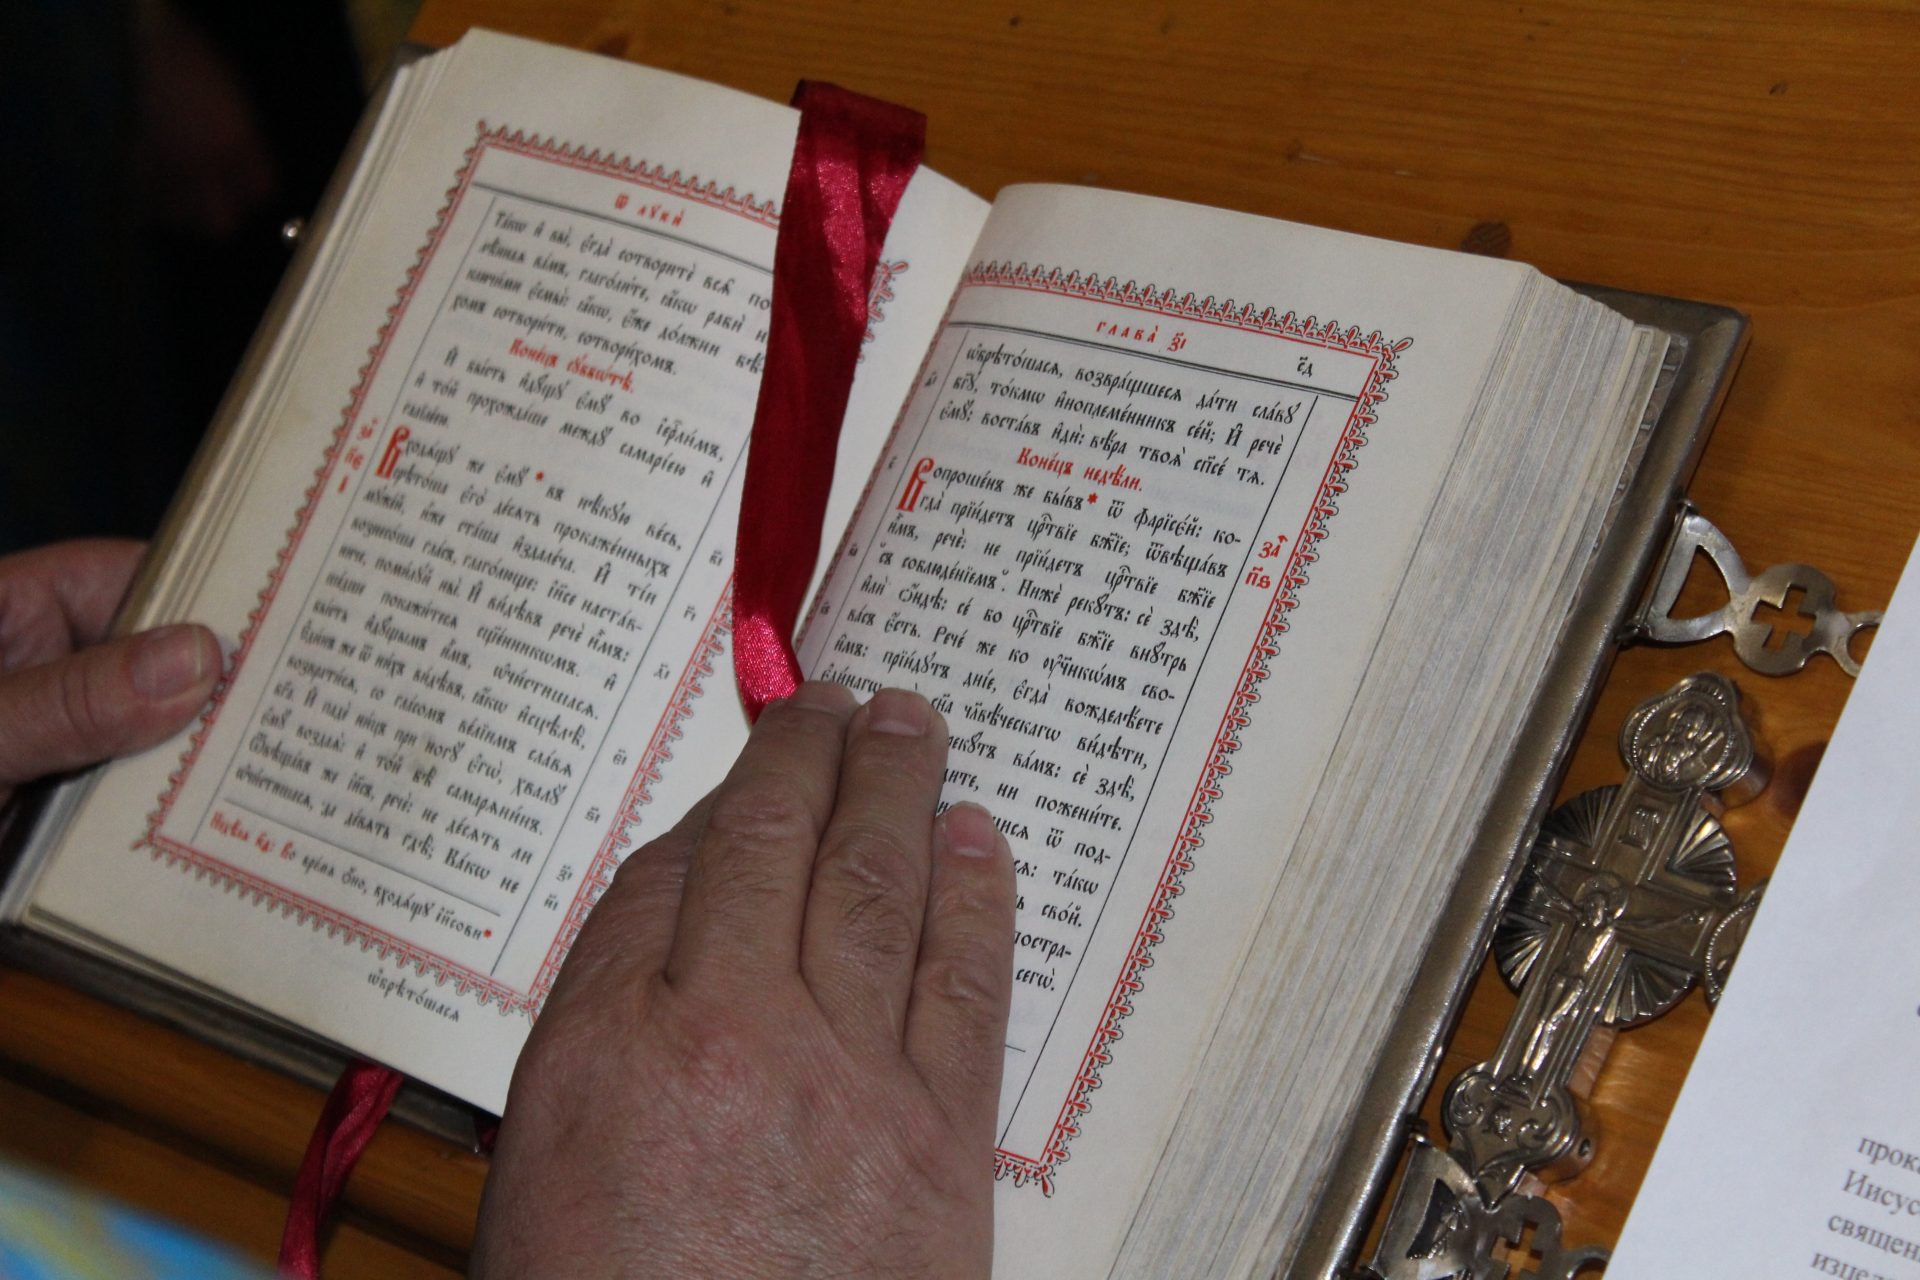 Ѿ лꙋкѝ
Та́кѡ и҆ вы̀, є҆гда̀ сотворитѐ всѧ̑ по-
велѣ̑ннаѧ ва́мъ, глаго́лите, ꙗ҆́кѡ рабѝ
ключи́ми є҆смы̀: ꙗ҆́кѡ, є҆́же до́лжни бѣ́-
хомъ сотвори́ти, сотвори́хомъ.
Коне́цъ сꙋббѡ́тѣ.
И҆ бы́сть и҆дꙋ́щꙋ є҆мꙋ̀ во і҆ерⷭ҇ли́мъ,
и҆ то́й прохожда́ше междꙋ̀ самарі́ею и҆
галїле́ею.
Входѧ́щꙋ же є҆мꙋ̀ * въ нѣ́кꙋю ве́сь,
срѣто́ша є҆го̀ де́сѧть прокаже́нныхъ
мꙋже́й, и҆̀же ста́ша и҆здале́ча. И҆ ті́и
вознесо́ша гла́съ, глаго́люще: і҆и҃се наста́в-
ниче, поми́лꙋй ны̀. И҆ ви́дѣвъ речѐ и҆̀мъ:
ше́дше покажи́тесѧ сщ҃е́нникѡмъ. И҆
бы́сть и҆дꙋ́щымъ и҆̀мъ, ѡ҆чи́стишасѧ.
Є҆ди́нъ же ѿ ни́хъ ви́дѣвъ, ꙗ҆́кѡ и҆сцѣлѣ̀,
возврати́сѧ, со гла́сомъ ве́лїимъ сла́вѧ
бг҃а. И҆ падѐ ни́цъ при ногꙋ̀ є҆гѡ̀, хвалꙋ̀
є҆мꙋ̀ воздаѧ̀: и҆ то́й бѣ̀ самарѧни́нъ.
Ѿвѣща́въ же і҆и҃съ, речѐ: не де́сѧть ли
ѡ҆чи́стишасѧ, да де́вѧть гдѣ̀; Ка́кѡ не
Недѣ́лѧ к҃ѳ: Во вре́мѧ ѻ҆́но, входѧ́щꙋ і҆и҃сови *
ѡ҆брѣто́шасѧ
глава̀ з҃і
с҃д
ѡ҆брѣто́шасѧ, возвра́щшесѧ да́ти сла́вꙋ
бг҃ꙋ, то́кмѡ и҆ноплеме́нникъ се́й; И҆ речѐ
є҆мꙋ̀: воста́въ и҆дѝ: вѣ́ра твоѧ̀ сп҃се́ тѧ.
Коне́цъ недѣ́ли.
Вопроше́нъ же бы́въ * ѿ фарїсє́й: ко-
гда̀ прїи́детъ црⷭ҇твїе бж҃їе; ѿвѣща́въ
и҆̀мъ, речѐ: не прїи́детъ црⷭ҇твїе бж҃їе
съ соблюде́нїемъ. Нижѐ рекꙋ́тъ: сѐ здѣ̀,
и҆лѝ ѻ҆́ндѣ: се́ бо црⷭ҇твїе бж҃їе внꙋ́трь
ва́съ є҆́сть. Рече́ же ко ᲂу҆ч҃нкѡ́мъ свои̑-
и҆̀мъ: прїи́дꙋтъ дні́е, є҆гда̀ вожделѣ́ете
є҆ди́нагѡ сн҃а чл҃вѣ́ческагѡ ви́дѣти,
рекꙋ́тъ ва́мъ: сѐ здѣ̀,
дите, ни пожени́те.
ѿ под-
та́кѡ
сво́й.
постра-
сегѡ̀.
за҃
п҃в
прок
Иисус
священ